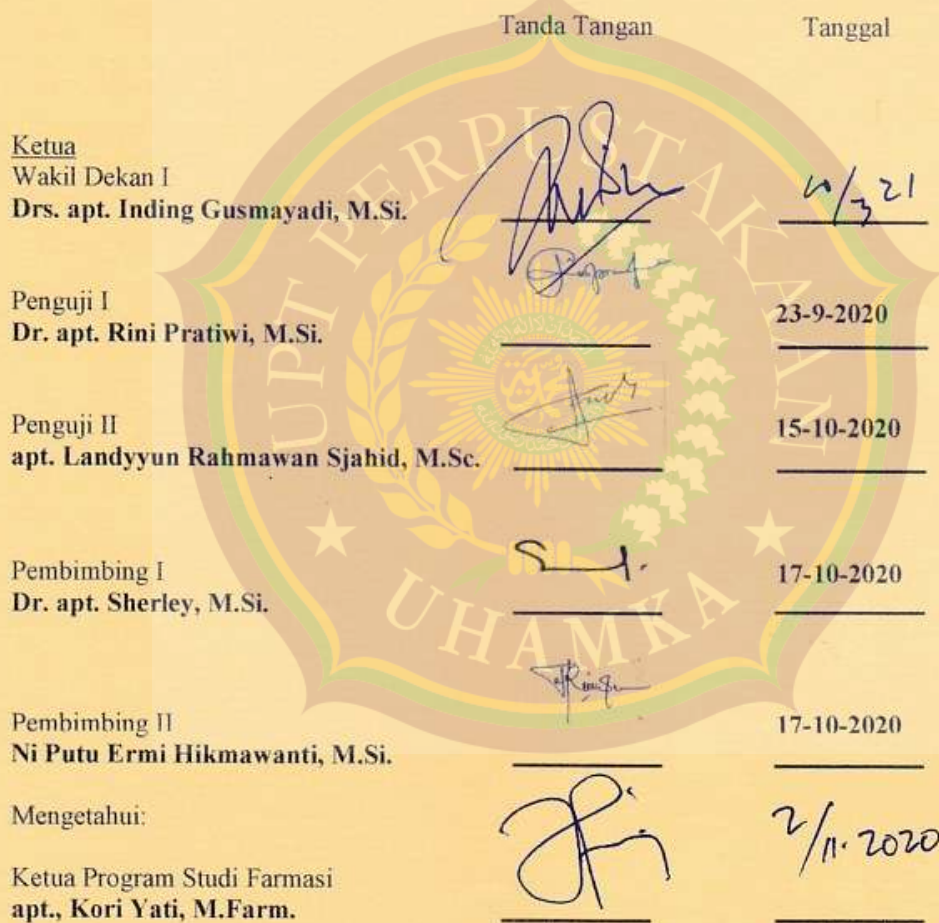 Tanda Tangan Tanggal
Ketua
Wakil Dekan I
Drs. apt. Inding Gusmayadi, M.Si.
Penguji I
Dr. apt. Rini Pratiwi, M.Si. 23-9-2020
Penguji II
apt. Landyyun Rahmawan Sjahid, M.Sc. 15-10-2020
Pembimbing I
Dr. apt. Sherley, M.Si. 17-10-2020
Pembimbing II
Ni Putu Ermi Hikmawanti, M.Si. 17-10-2020
Mengetahui:
Ketua Program Studi Farmasi
apt., Kori Yati, M.Farm. 2/11. 2020
UPT PERPUSTAKAAN
UHAMKA